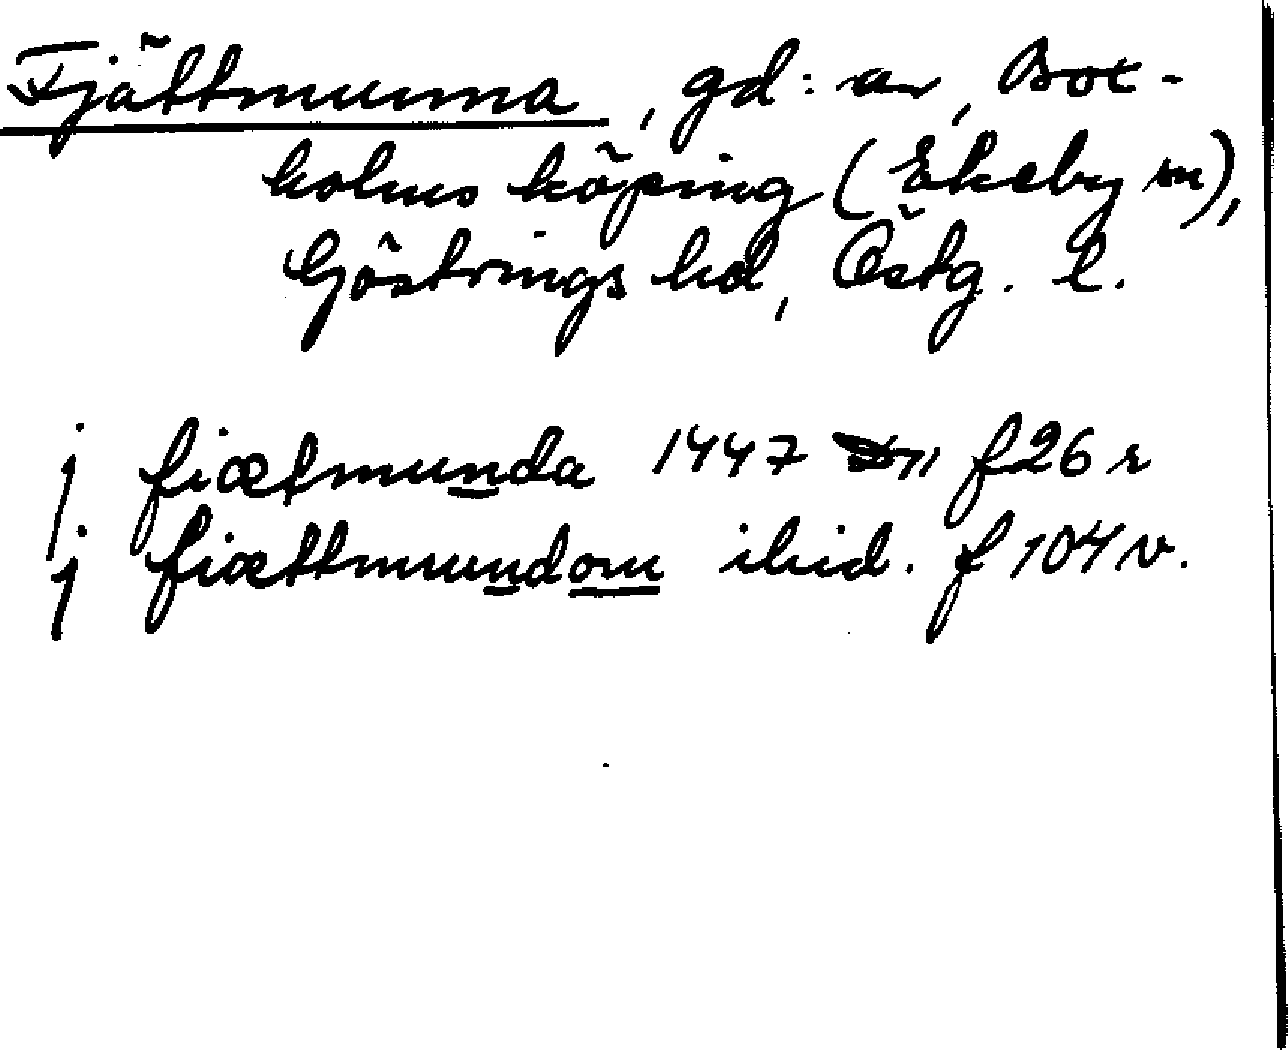 Fjättmunna, gd: ar, Box-
holms köping (Ekeby sn),
Göstrings hd, Östg. l.
j fiætmunda 1447 f 26 r
j fiættmundom ibid. f 104 v.